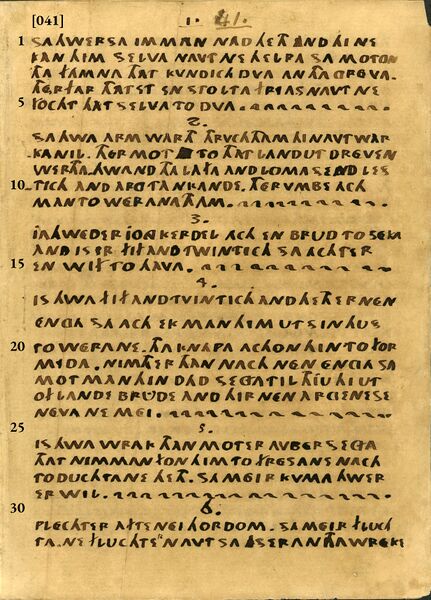 [041] 1. 41.
1 SAHWERSA IMMAN NAD HETH AND HI NE
KAN HIM SELVA NAVT NE HELPA SA MOTON
THA FAMNA THAT KVNDICH DVA AN THA GREVA.
THERFAR THAT ET EN STOLTA FRIAS NAVT NE
5 FOCHT THAT SELVA TO DVA.
2.
SAHWA ARM WARTH THRVCH THAM HI NAVT WAR
KA NIL. THER MOT TO THAT LAND UT DREVEN
WERTHA, HWAND THA LAFA AND LOMA SEND LES
10 TICH AND ARG TANKANDE. THERVMBE ACH
MAN TO WERANA THAM.
3.
IAHWEDER IONG KERDEL ACH EN BRUD TO SEKA
AND IS ER FIF AND TWINTICH SA ACHTER
15 EN WIF TO HAVA.
4.
IS HWA FIF AND TVINTICH AND HETH ER NEN
ENGA SA ACH EK MAN HIM UT SIN HUS
20 TO WERANE. THA KNAPA ACHON HIN TO FOR
MIDA. NIMTHER THAN NACH NEN ENGA SA
MOT MAN HIN DAD SEGA TIL THIU HI UT
OF LANDE BRUDE AND HIR NEN ARGENESE
NEVA NE MEI.
25 5.
IS HWA WRAK THAN MOT ER AVBER SEGA
THAT NIMMAN FON HIM TO FRESANE NACH
TO DUCHTANE HETH. SA MEIR KVMA HWER
ER WIL.
30 6.
PLECHTER AFTERNEI HORDOM. SA MEIR FLUCH
TA. NE FLUCHTER NAVT SA IS ER AN THA WREKE